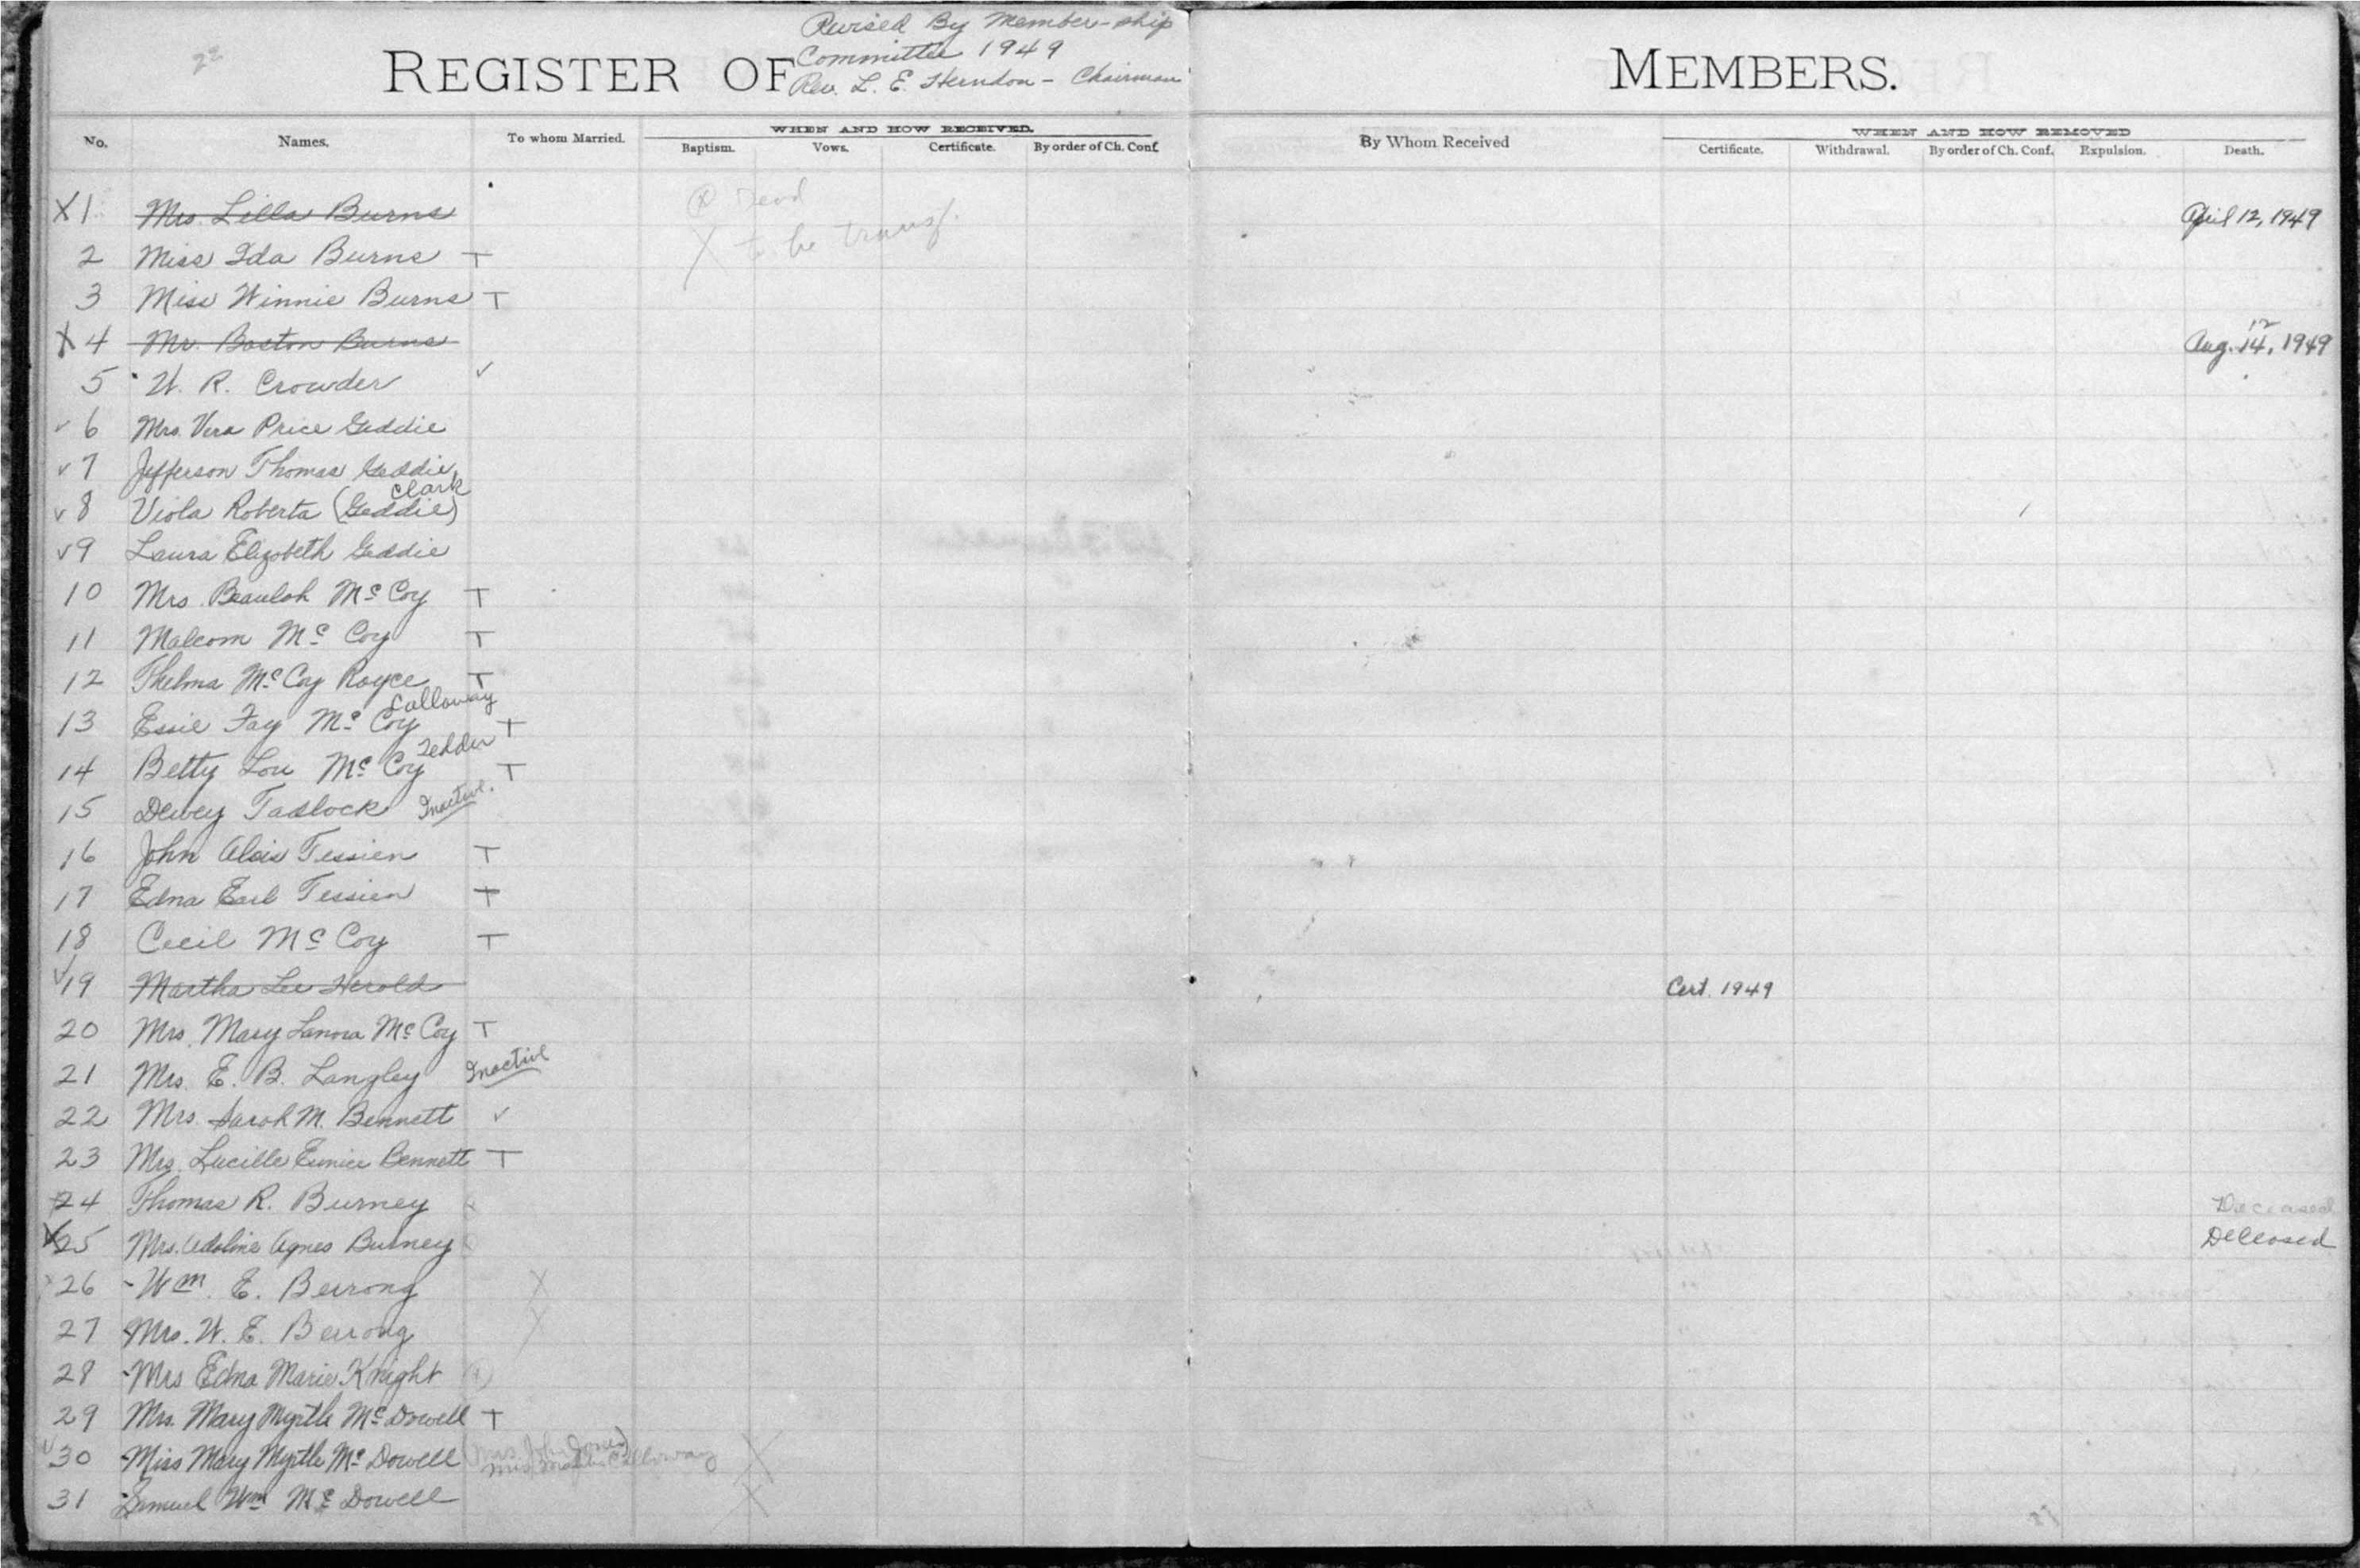 22
Revised By Member-ship
Committee 1949
Rev. L. E. Herndon - Chairman
REGISTER OF MEMBERS.
No. Names. To whom Married. WHEN AND HOW RECEIVED. By Whom Received WHEN AND HOW REMOVED
Baptism. Vows. Certificate. By order of Ch. Conf. Certificate. Withdrawal. By order of Ch. Conf. Expulsion. Death.
Ⓧ Dead
X to be transf.
X 1 Mrs. Lilla Burns April 12, 1949
2 Miss Ida Burns T
3 Miss Winnie Burns T
X 4 Mr. Boston Burns Aug. 14, 1949
12
5 W. R. Crowder ✓
✓ 6 Mrs. Vera Price Geddie
✓ 7 Jefferson Thomas Geddie
Clark
✓ 8 Viola Roberta (Geddie)
✓ 9 Laura Elizabeth Geddie
10 Mrs. Beaulah McCoy T
11 Malcom Mc Coy T
12 Thelma McCoy Royce T
Calloway
13 Essie Fay Mc Coy T
Tedder
14 Betty Lou Mc Coy T
15 Dewey Tadlock Inactive.
16 John Alois Tessien T
17 Edna Earl Tessien T
18 Cecil Mc Coy T
✓ 19 Martha Lee Herold Cert. 1949
20 Mrs. Mary Lanora McCoy T
21 Mrs. E. B. Langley Inactive
22 Mrs. Sarah M. Bennett ✓
23 Mrs. Lucille Eunice Bennett T
24 Thomas R. Burney Deceased
X 25 Mrs. Adaline Agnes Burney Deceased
26 - Wm. E. Berrong X
27 Mrs. W. E. Berrong X
28 - Mrs Edna Marie Knight (X)
29 Mrs. Mary Myrtle McDowell T
✓ 30 - Miss Mary Myrtle Mc Dowell (Mrs. John Jones) X
Calloway
31 Samuel Wm Mc Dowell X